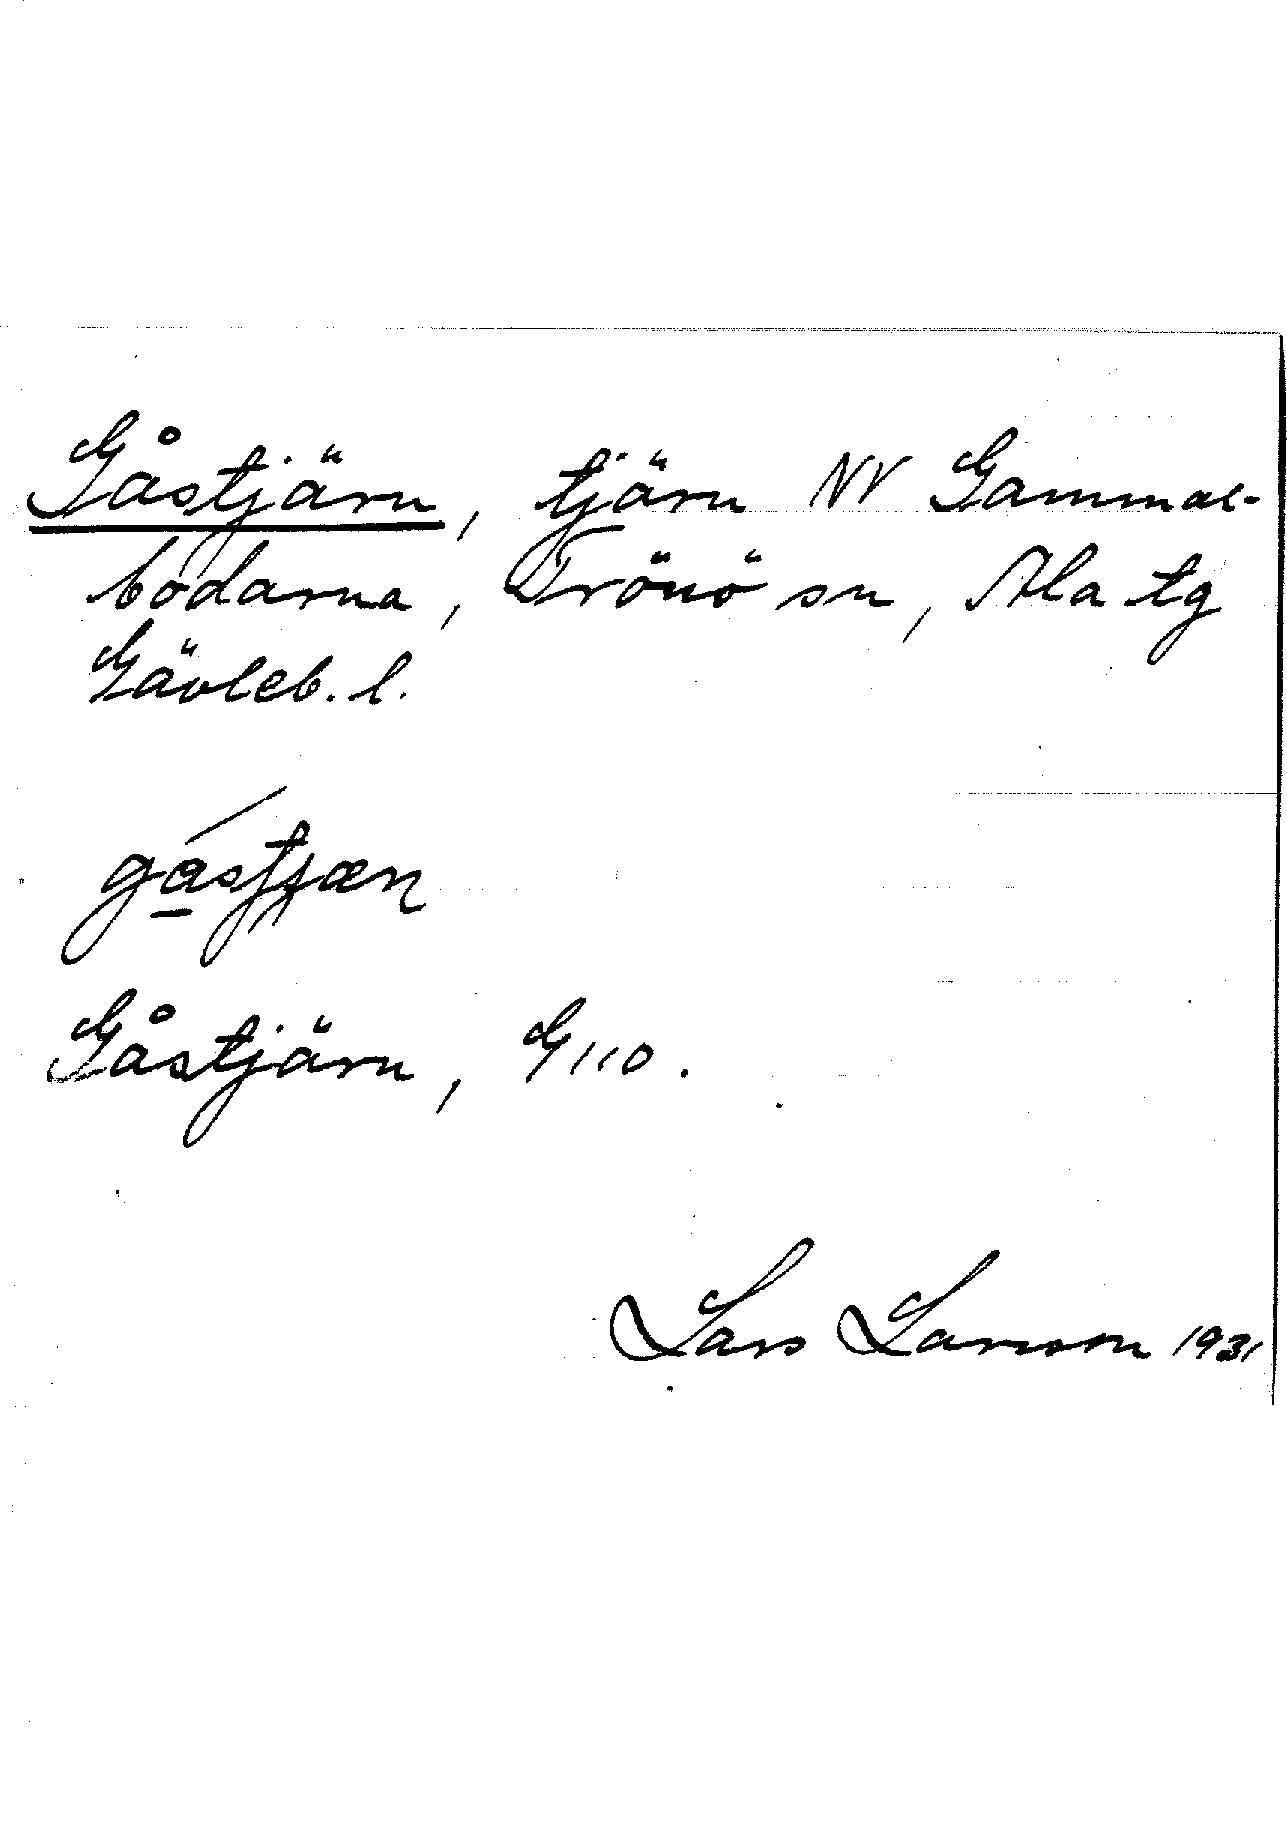 Gåstjärn, tjärn NV Gammal-
bodarna, Trönö sn, Ala tg
Gävleb. l.
Gåstjärn, G 110.
Lars Larsson 1931